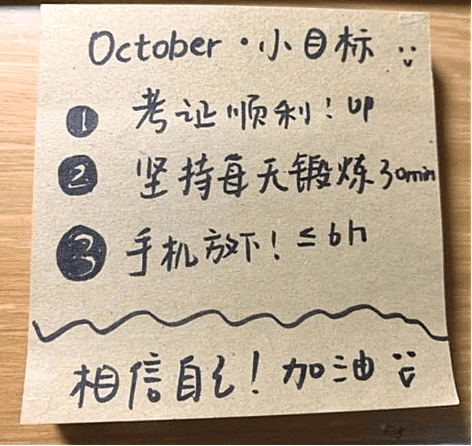 October·小目标
1 考证顺利！up
2 坚持每天锻炼30min
3 手机放下！≤6h
相信自己！加油